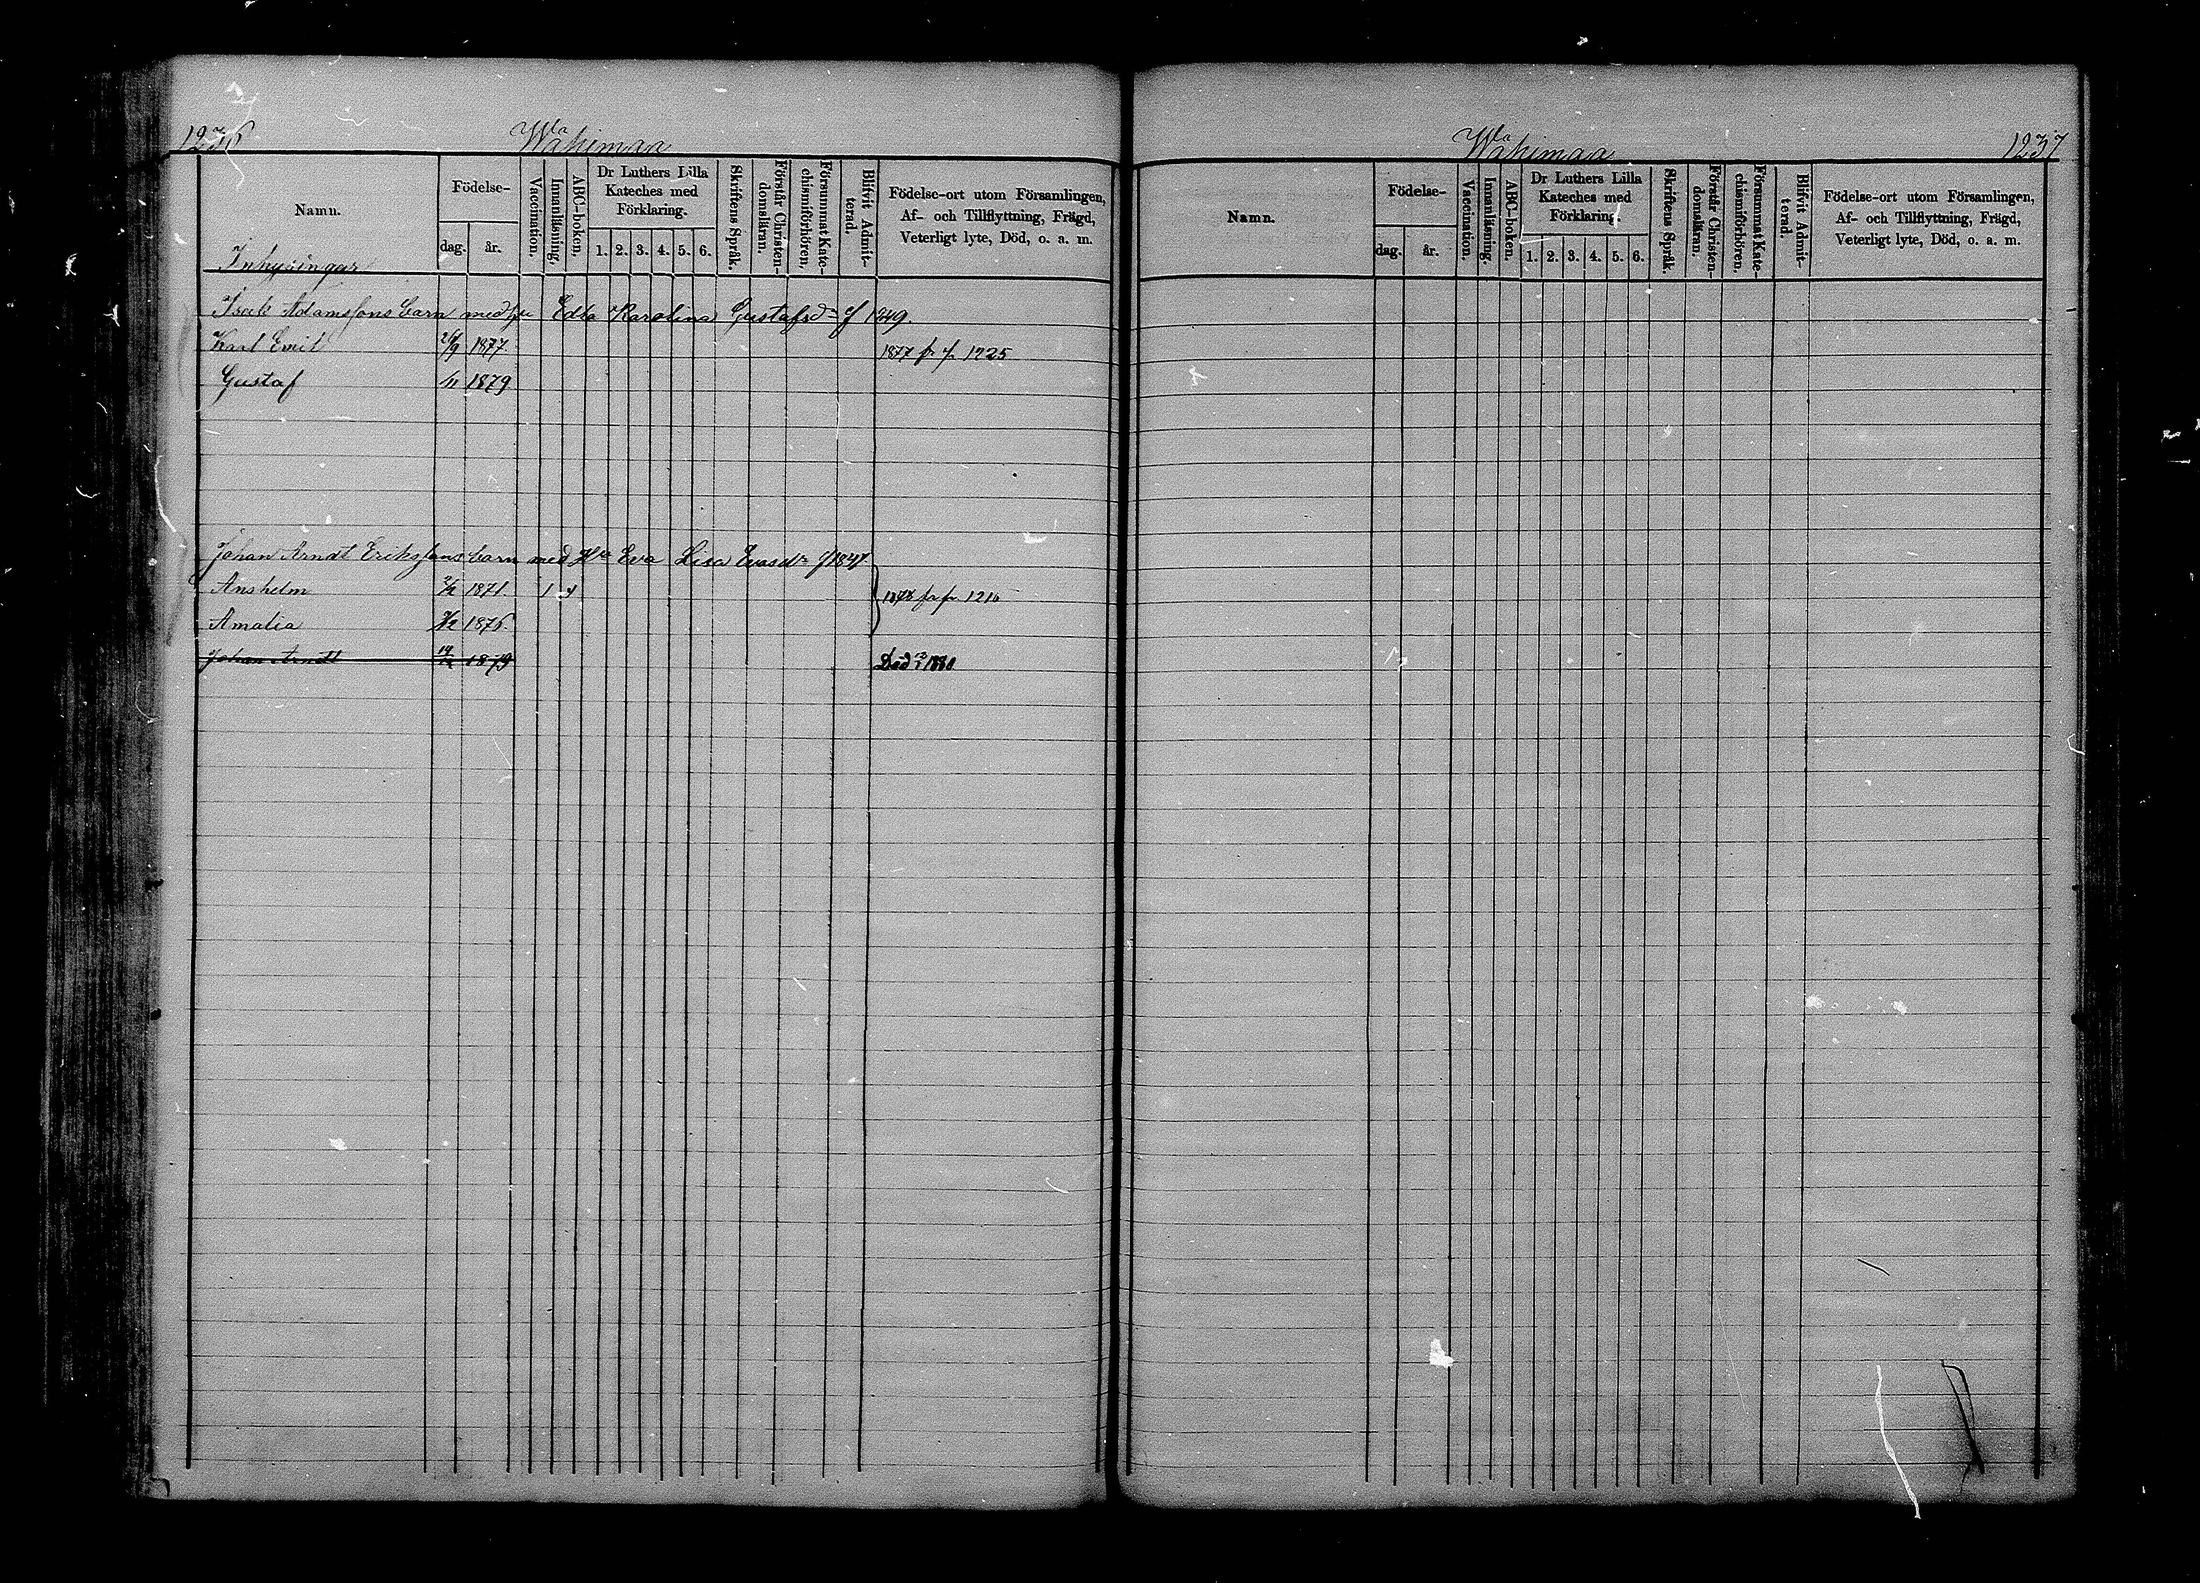 1236
Wähimaa
Namn.
Födelse-
dag. år.
Vaccination.
Innanläsning.
ABC-boken.
Dr Luthers Lilla
Kateches med
Förklaring.
1. 2. 3. 4. 5. 6.
Skriftens Språk.
Förstår Christen-
domsläran.
Försummat Kate-
chismiförhören.
Blifvit Admit-
terad.
Födelse-ort utom Församlingen,
Af- och Tillflyttning, Frägd,
Veterligt lyte, Död, o. a. m.
Inhysingar
Isak Adamssons barn med Edla Karolina Gustafsd:r f 1849.
Karl Emil 26/9 1877. 1877 fr p 1225
Gustaf 1879
Johan Arndt Erikssons barn med Eva Lisa Evasd:r f 1847.
Anshelm 1871. fr p. 1216
Amalia 1876.
Johan Arndt 1879 Död
Wähimaa
1237
Namn.
Födelse-
dag. år.
Vaccination.
Innanläsning.
ABC-boken.
Dr Luthers Lilla
Kateches med
Förklaring.
1. 2. 3. 4. 5. 6.
Skriftens Språk.
Förstår Christen-
domsläran.
Försummat Kate-
chismiförhören.
Blifvit Admit-
terad.
Födelse-ort utom Församlingen,
Af- och Tillflyttning, Frägd,
Veterligt lyte, Död, o. a. m.